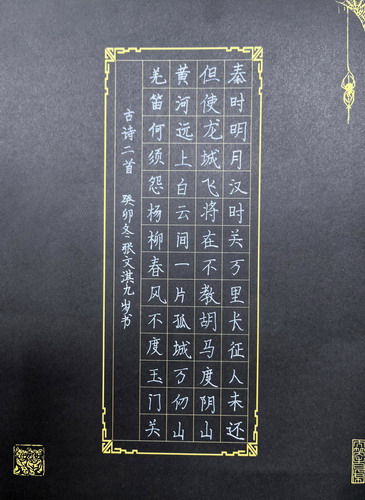 秦时明月汉时关万里长征人未还
但使龙城飞将在不教胡马度阴山
黄河远上白云间一片孤城万仞山
羌笛何须怨杨柳春风不度玉门关
古诗二首 癸卯冬张文淇九岁书